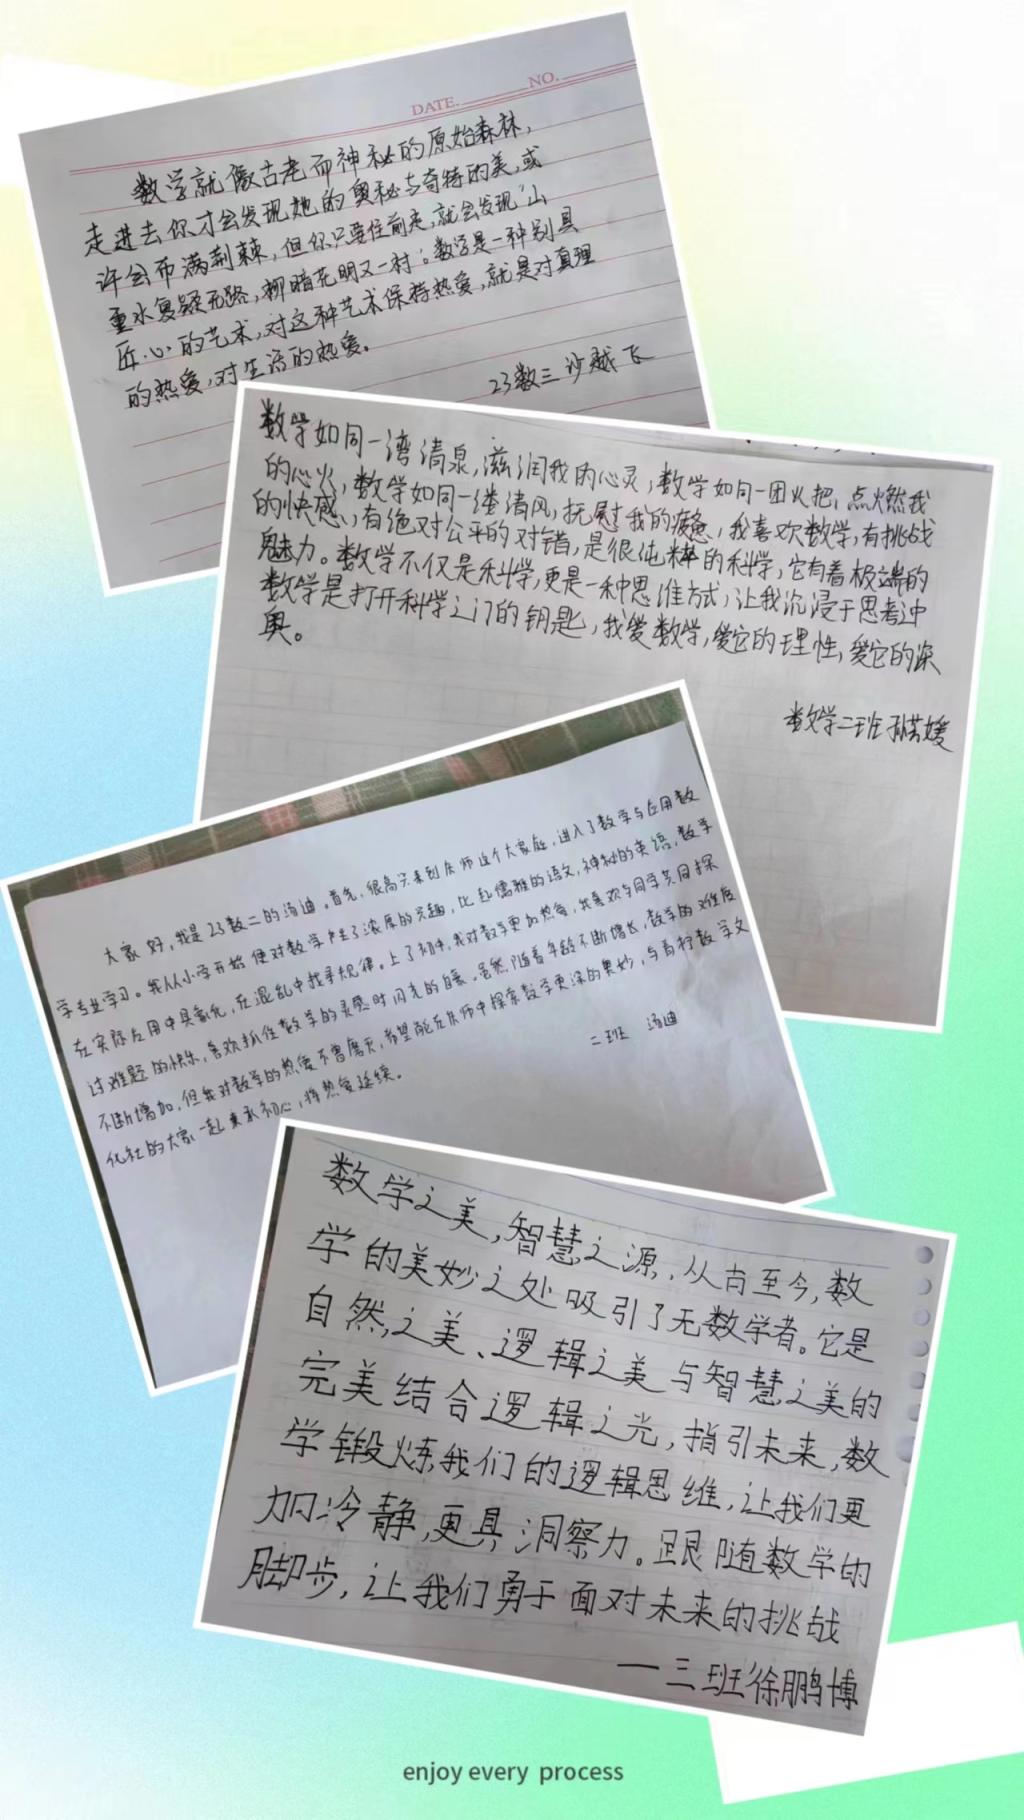 DATE. NO.
数学就像古老而神秘的原始森林,
走进去你才会发现她的奥秘与奇特的美,或
许会布满荆棘,但你只要往前走,就会发现“山
重水复疑无路,柳暗花明又一村”。数学是一种别具
匠心的艺术,对这种艺术保持热爱,就是对真理
的热爱,对生活的热爱。
23数三 沙越飞
数学如同一湾清泉,滋润我的心灵,数学如同一团火把,点燃我
的心火,数学如同一缕清风,抚慰我的疲惫,我喜欢数学,有挑战
的快感,有绝对公平的对错,是很纯粹的科学,它有着极端的
魅力。数学不仅是科学,更是一种思维方式,让我沉浸于思考过中
数学是打开科学之门的钥匙,我爱数学,爱它的理性,爱它的深
奥。
数学二班 孙芸媛
大家好,我是23数二的汤迪。首先,很高兴来到庆师这个大家庭,进入了数学与应用数
学专业学习。我从小学开始便对数学产生了浓厚的兴趣,比起儒雅的语文,神秘的英语,数学
在实际应用中具象化,在混乱中找寻规律。上了初中,我对数学更加热爱,我喜欢与同学共同探
讨难题的快乐,喜欢抓住数学的灵感时闪光的自豪。虽然随着年龄不断增长,数学的难度
不断增加,但我对数学的热爱不曾磨灭,希望能在庆师中探索数学更深的奥妙,与百柠数学文
化社的大家一起秉承初心,将热爱延续。
二班 汤迪
数学之美,智慧之源,从古至今,数
学的美妙之处吸引了无数学者。它是
自然之美、逻辑之美与智慧之美的
完美结合逻辑之光,指引未来,数
学锻炼我们的逻辑思维,让我们更
加冷静,更具洞察力。跟随数学的
脚步,让我们勇于面对未来的挑战
一三班徐鹏博
enjoy every process